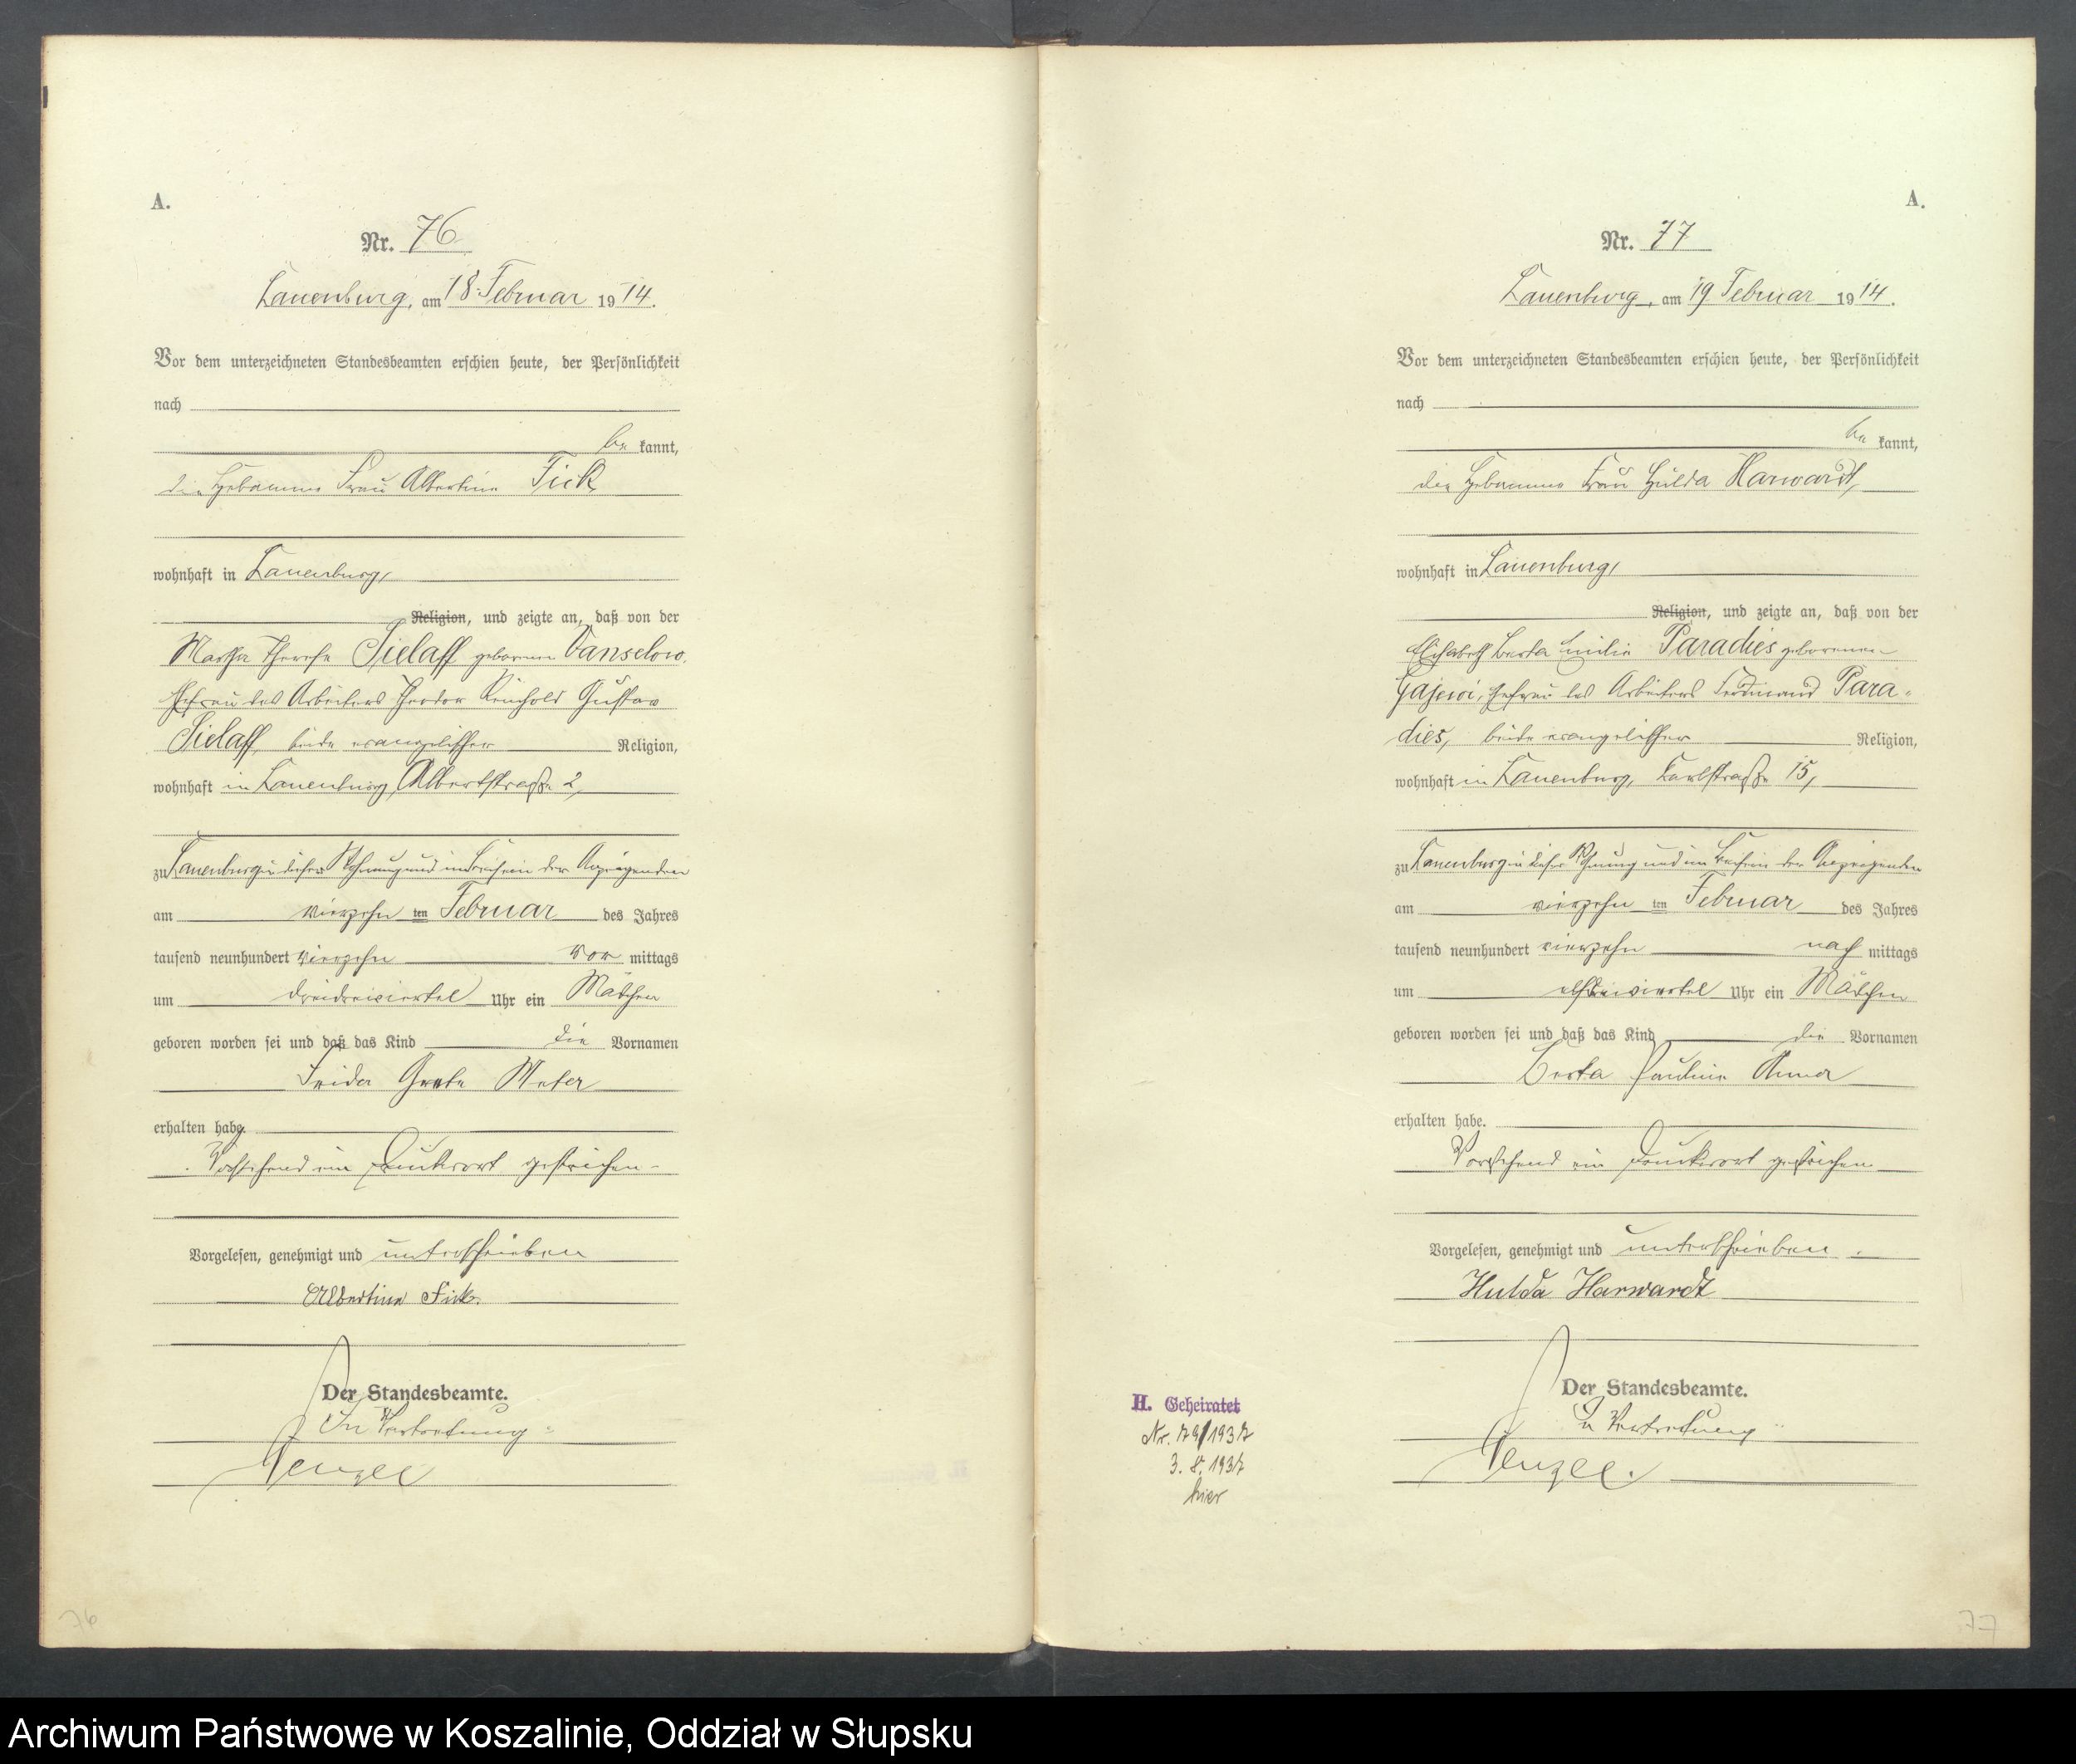 A.
Nr. 76
Lauenburg, am 18. Februar 1914.
Vor dem unterzeichneten Standesbeamten erschien heute, der Persönlichkeit
nach
be kannt,
die Hebamme Frau Albertine Fick
wohnhaft in Lauenburg,
Religion, und zeigte an, daß von der
Martha Therese Sielaff geborenen Vanselow,
Ehefrau des Arbeiters Theodor Reinhold Gustav
Sielaff, beide evangelischer Religion,
wohnhaft in Lauenburg, Albertstraße 2,
zu Lauenburg in dieser Wohnung und im Beisein der Anzeigenden
am vierzehn ten Februar des Jahres
tausend neunhundert vierzehn vor mittags
um dreidreiviertel Uhr ein Mädchen
geboren worden sei und daß das Kind die Vornamen
Frida Grete
erhalten habe.
Vorstehend ein Druckwort gestrichen
Vorgelesen, genehmigt und unterschrieben
Albertine Fick.
Der Standesbeamte.
In Vertretung
76
A.
Nr. 77
Lauenburg, am 19 Februar 1914.
Vor dem unterzeichneten Standesbeamten erschien heute, der Persönlichkeit
nach
be kannt,
die Hebamme Frau Hulda Harwardt,
wohnhaft in Lauenburg,
Religion, und zeigte an, daß von der
Elisabeth Berta Emilie Paradies geborenen
Gajewi, Ehefrau des Arbeiters Ferdinand Para-
dies, beide evangelischer Religion,
wohnhaft in Lauenburg, Karlstraße 15,
zu Lauenburg in dieser Wohnung und im Beisein der Anzeigenden
am vierzehn ten Februar des Jahres
tausend neunhundert vierzehn nach mittags
um elfdreiviertel Uhr ein Mädchen
geboren worden sei und daß das Kind die Vornamen
Berta Pauline Anna
erhalten habe.
Vorstehend ein Druckwort gestrichen
Vorgelesen, genehmigt und unterschrieben.
Hulda Harwardt
Der Standesbeamte.
In Vertretung
H. Geheiratet
Nr. 79/1937
3. 8. 1937
hier
77
Archiwum Państwowe w Koszalinie, Oddział w Słupsku